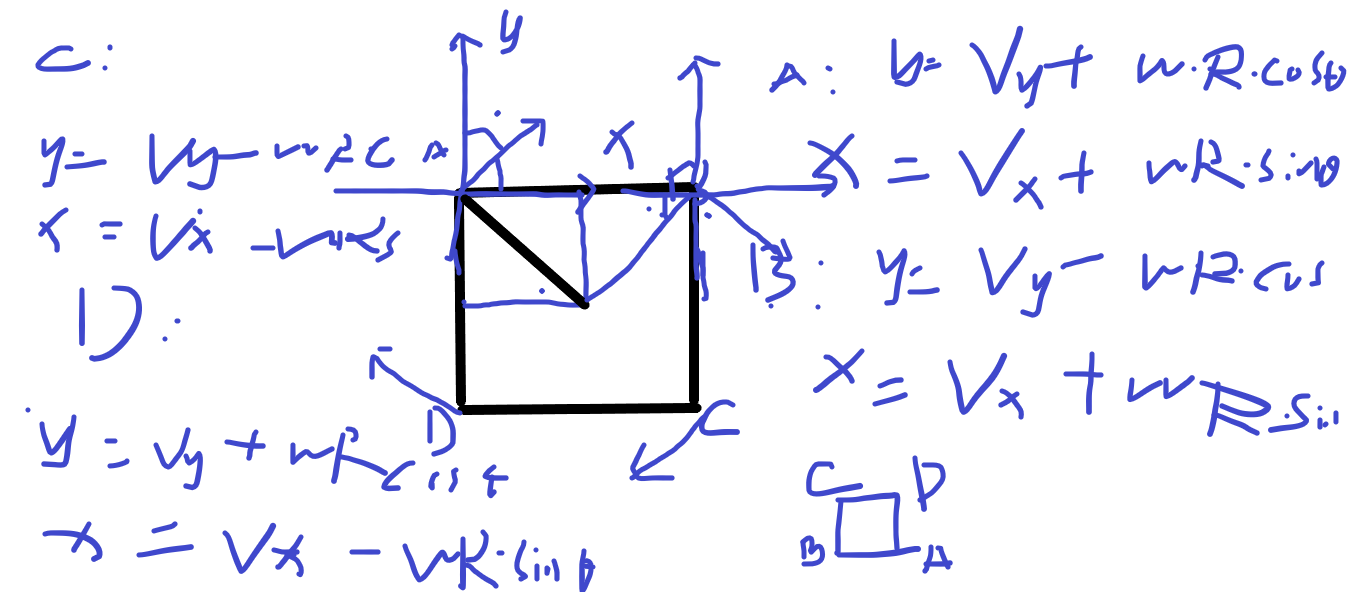 C:
y= Vy- wRC
x = Vx - wRs
D:
y = Vy + wR Cost
x = Vx - wR·sinθ
y
A
x
B
C
D
A: y= Vy+ w·R·cosθ
x = Vx + wR·sinθ
B: y= Vy- wR·cos
x = Vx + wR·sin
C D
B A